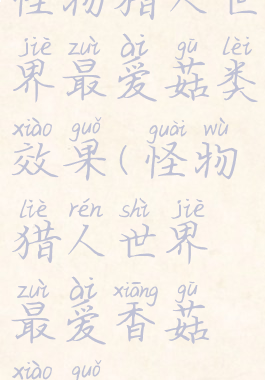 怪物猎人世
jiè zuì ài gū lèi
界最爱菇类
xiào guǒ guài wù
效果(怪物
liè rén shì jiè
猎人世界
zuì ài xiāng gū
最爱香菇
xiào guǒ